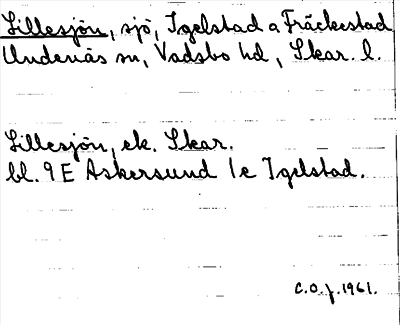 Lillesjön, sjö, Igelstad a Fräckestad
Undenäs sn, Vadsbo hd, Skar. l.
Lillesjön, ek. Skar.
bl. 9 E Askersund 1e Igelstad.
C.O.f. 1961.